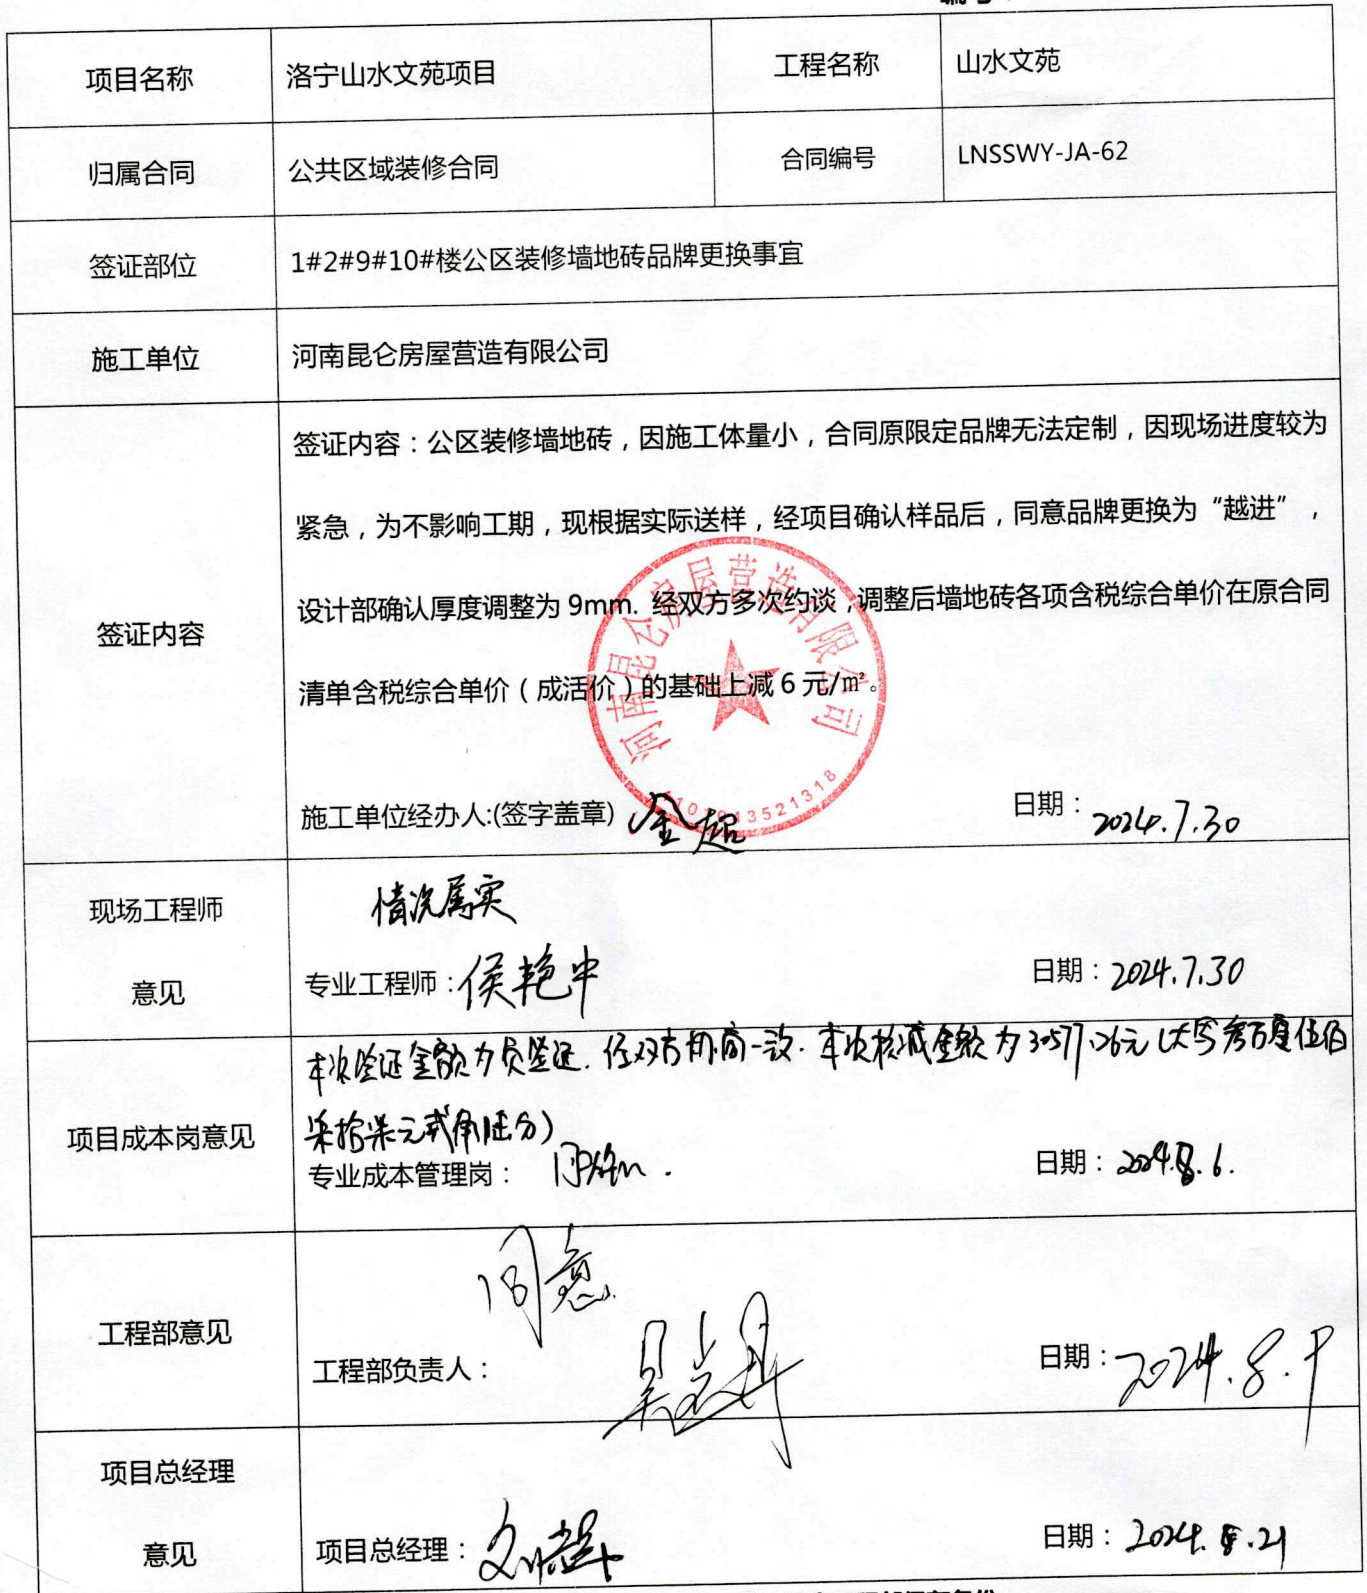 项目名称 洛宁山水文苑项目 工程名称 山水文苑
归属合同 公共区域装修合同 合同编号 LNSSWY-JA-62
签证部位 1#2#9#10#楼公区装修墙地砖品牌更换事宜
施工单位 河南昆仑房屋营造有限公司
签证内容
签证内容：公区装修墙地砖，因施工体量小，合同原限定品牌无法定制，因现场进度较为
紧急，为不影响工期，现根据实际送样，经项目确认样品后，同意品牌更换为“越进”，
设计部确认厚度调整为 9mm. 经双方多次约谈，调整后墙地砖各项含税综合单价在原合同
清单含税综合单价（成活价）的基础上减 6 元/㎡。
河南昆仑房屋营造有限公司
施工单位经办人:(签字盖章) 金超 日期：2024.7.30
现场工程师
意见
情况属实
专业工程师：侯艳中 日期：2024.7.30
项目成本岗意见
本次签证金额为负签证. 经双方协商一致. 本次核减金额为 元（大写
柒拾柒元贰角 分）
专业成本管理岗： 日期：2024.8.6.
工程部意见
同意
工程部负责人： 日期：2024.8.9
项目总经理
意见
项目总经理： 日期：2024.8.21